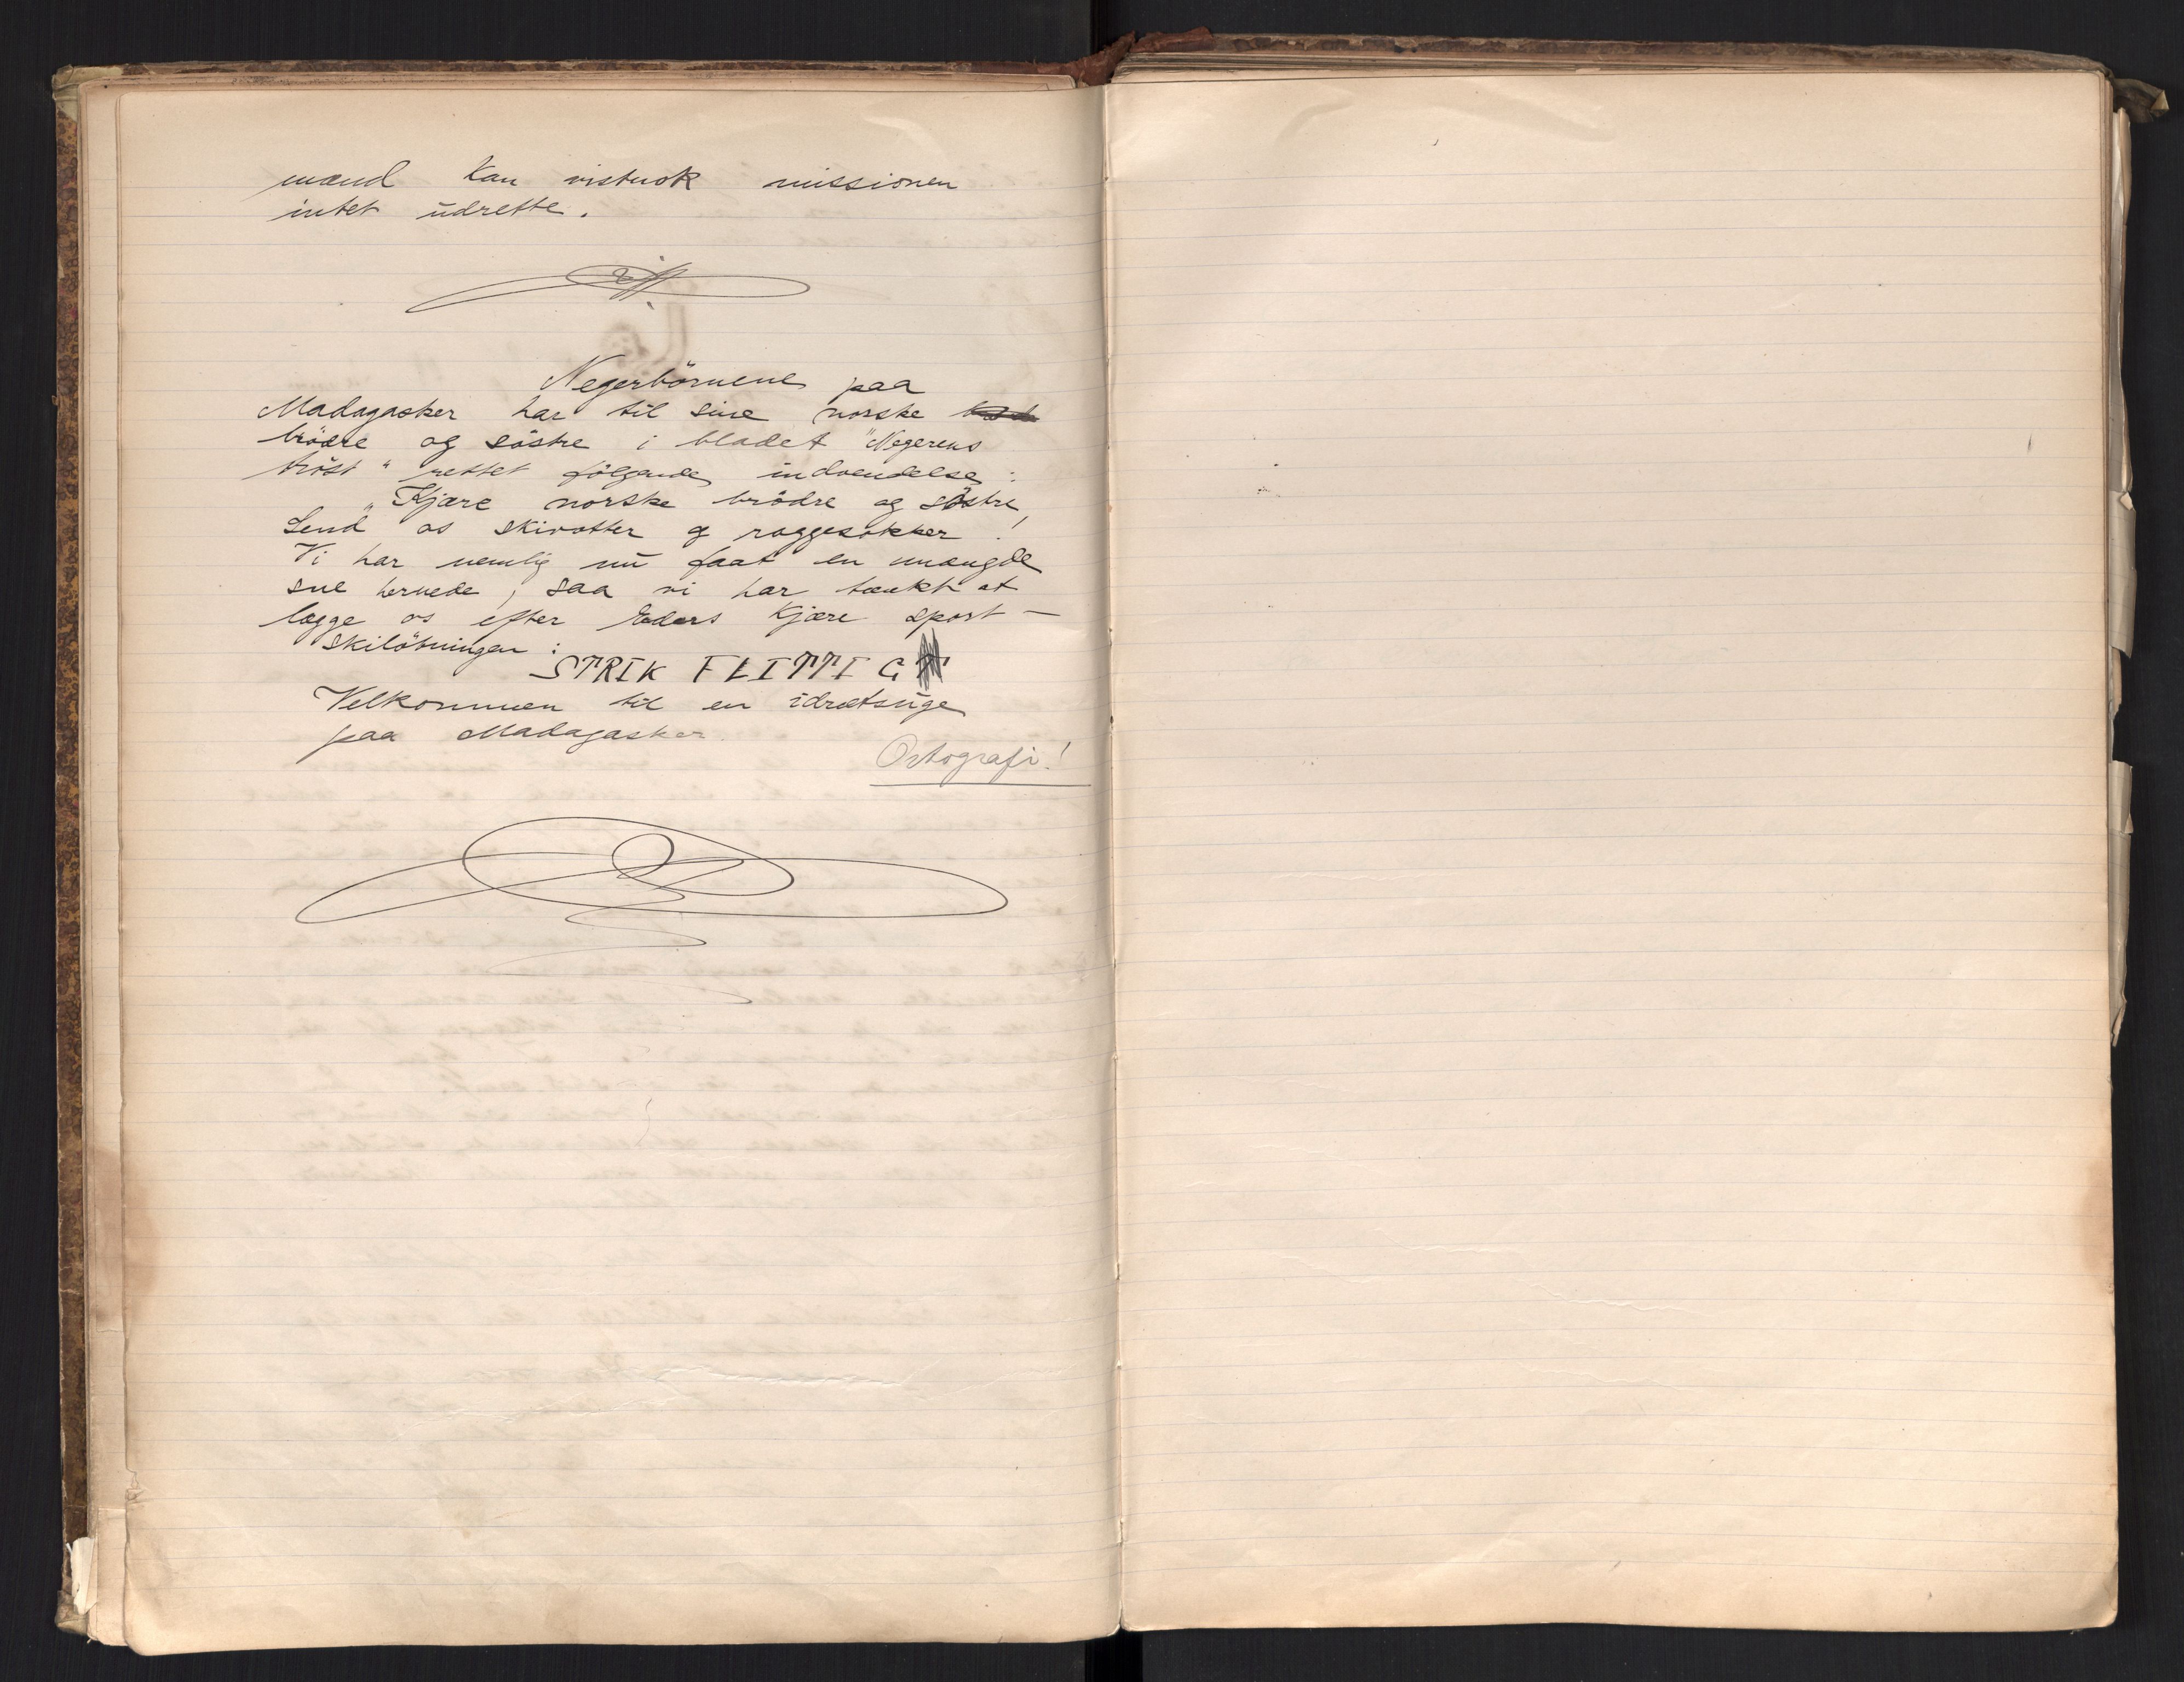 mænd kan vistnok missionen
intet udrette.
Negerbörnene paa
Madagasker har til sine norske
brödre og söstre i bladet "Negerens
tröst" rettet fölgende indvendelse:
"Kjære norske brödre og söstre,
Send os skivotter og raggesokker!
Vi har nemlig nu faat en mængde
sne hernede, saa vi har tænkt at
lægge os efter Eders kjære sport —
skilöbningen:
STRIK FLITTIG
Velkommen til en idrætsuge
paa Madagasker.
Ortografi!